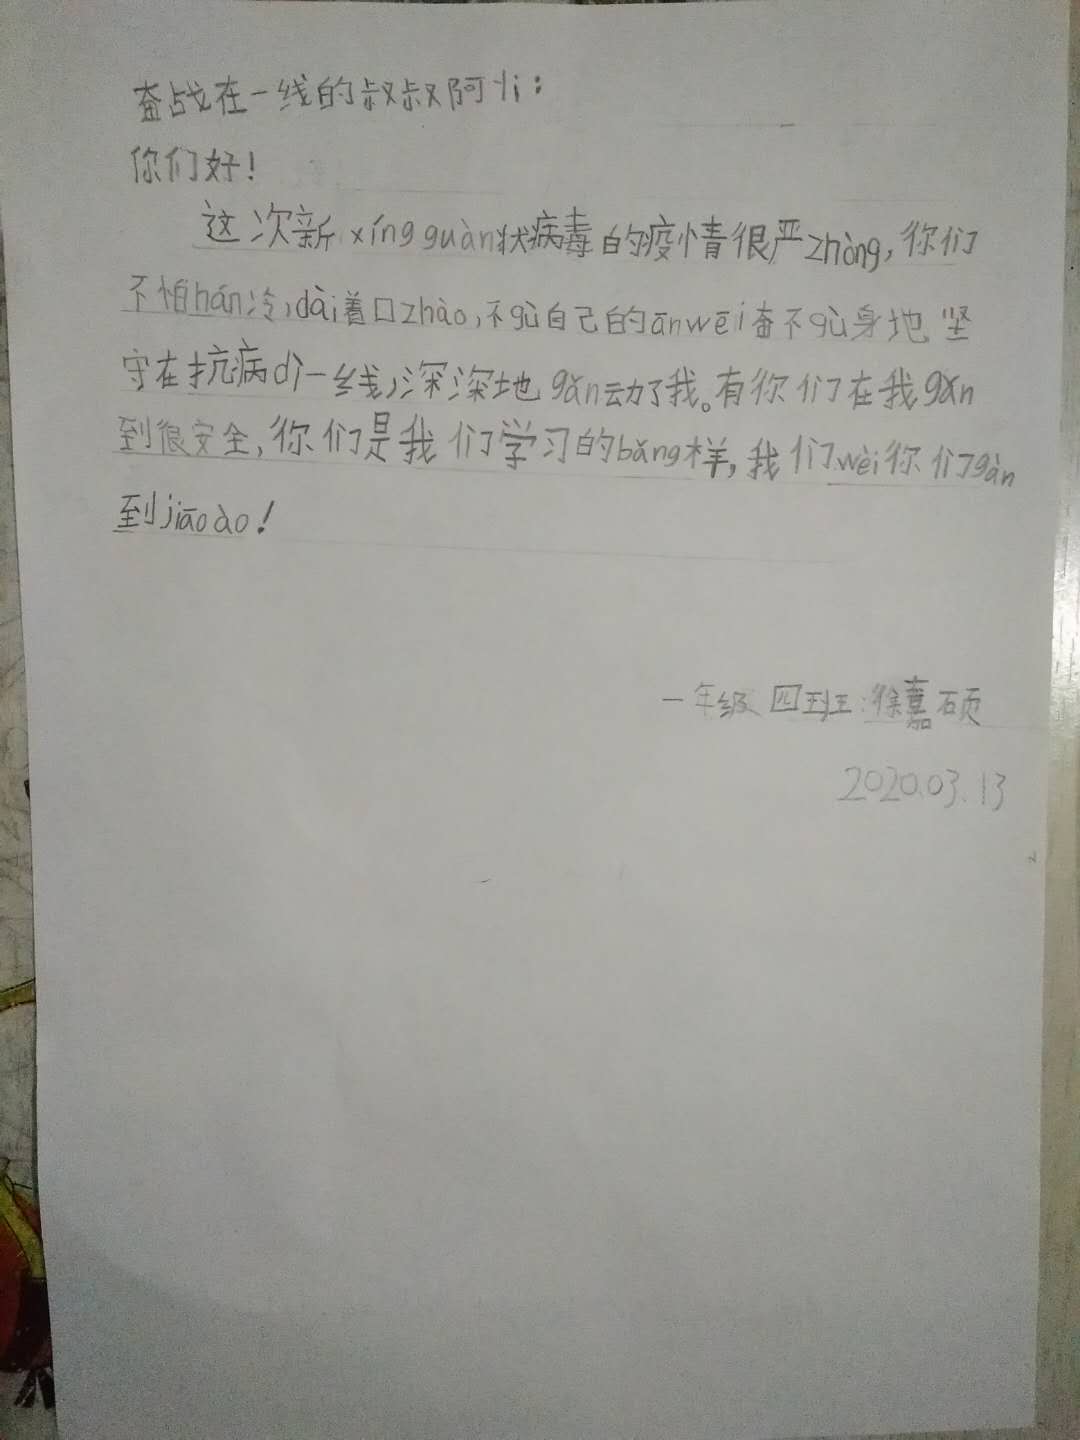 奋战在一线的叔叔阿yi：
你们好！
这次新xíngguàn状病毒的疫情很严zhòng，你们
不怕hán冷，dài着口zhào，不gù自己的ānwēi奋不gù身地坚
守在抗病dí一线，深深地gǎn动了我。有你们在我gǎn
到很安全，你们是我们学习的bǎng样，我们wèi你们gǎn
到jiāoào！
一年级四班：徐嘉硕
2020.03.13